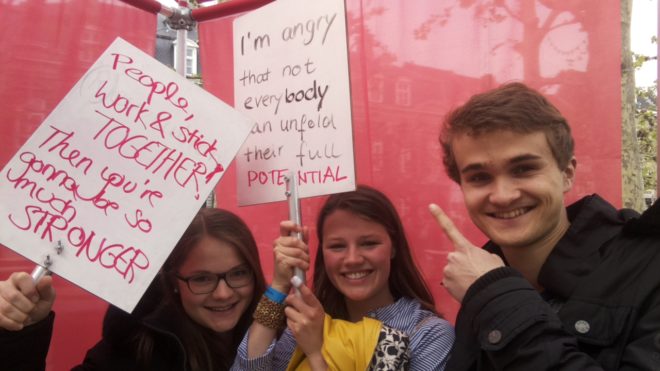 People,
Work & stick
TOGETHER!
Then you're
gonna be so
much
STRONGER
I'm angry
that not
everybody
can unfold
their full
POTENTIAL